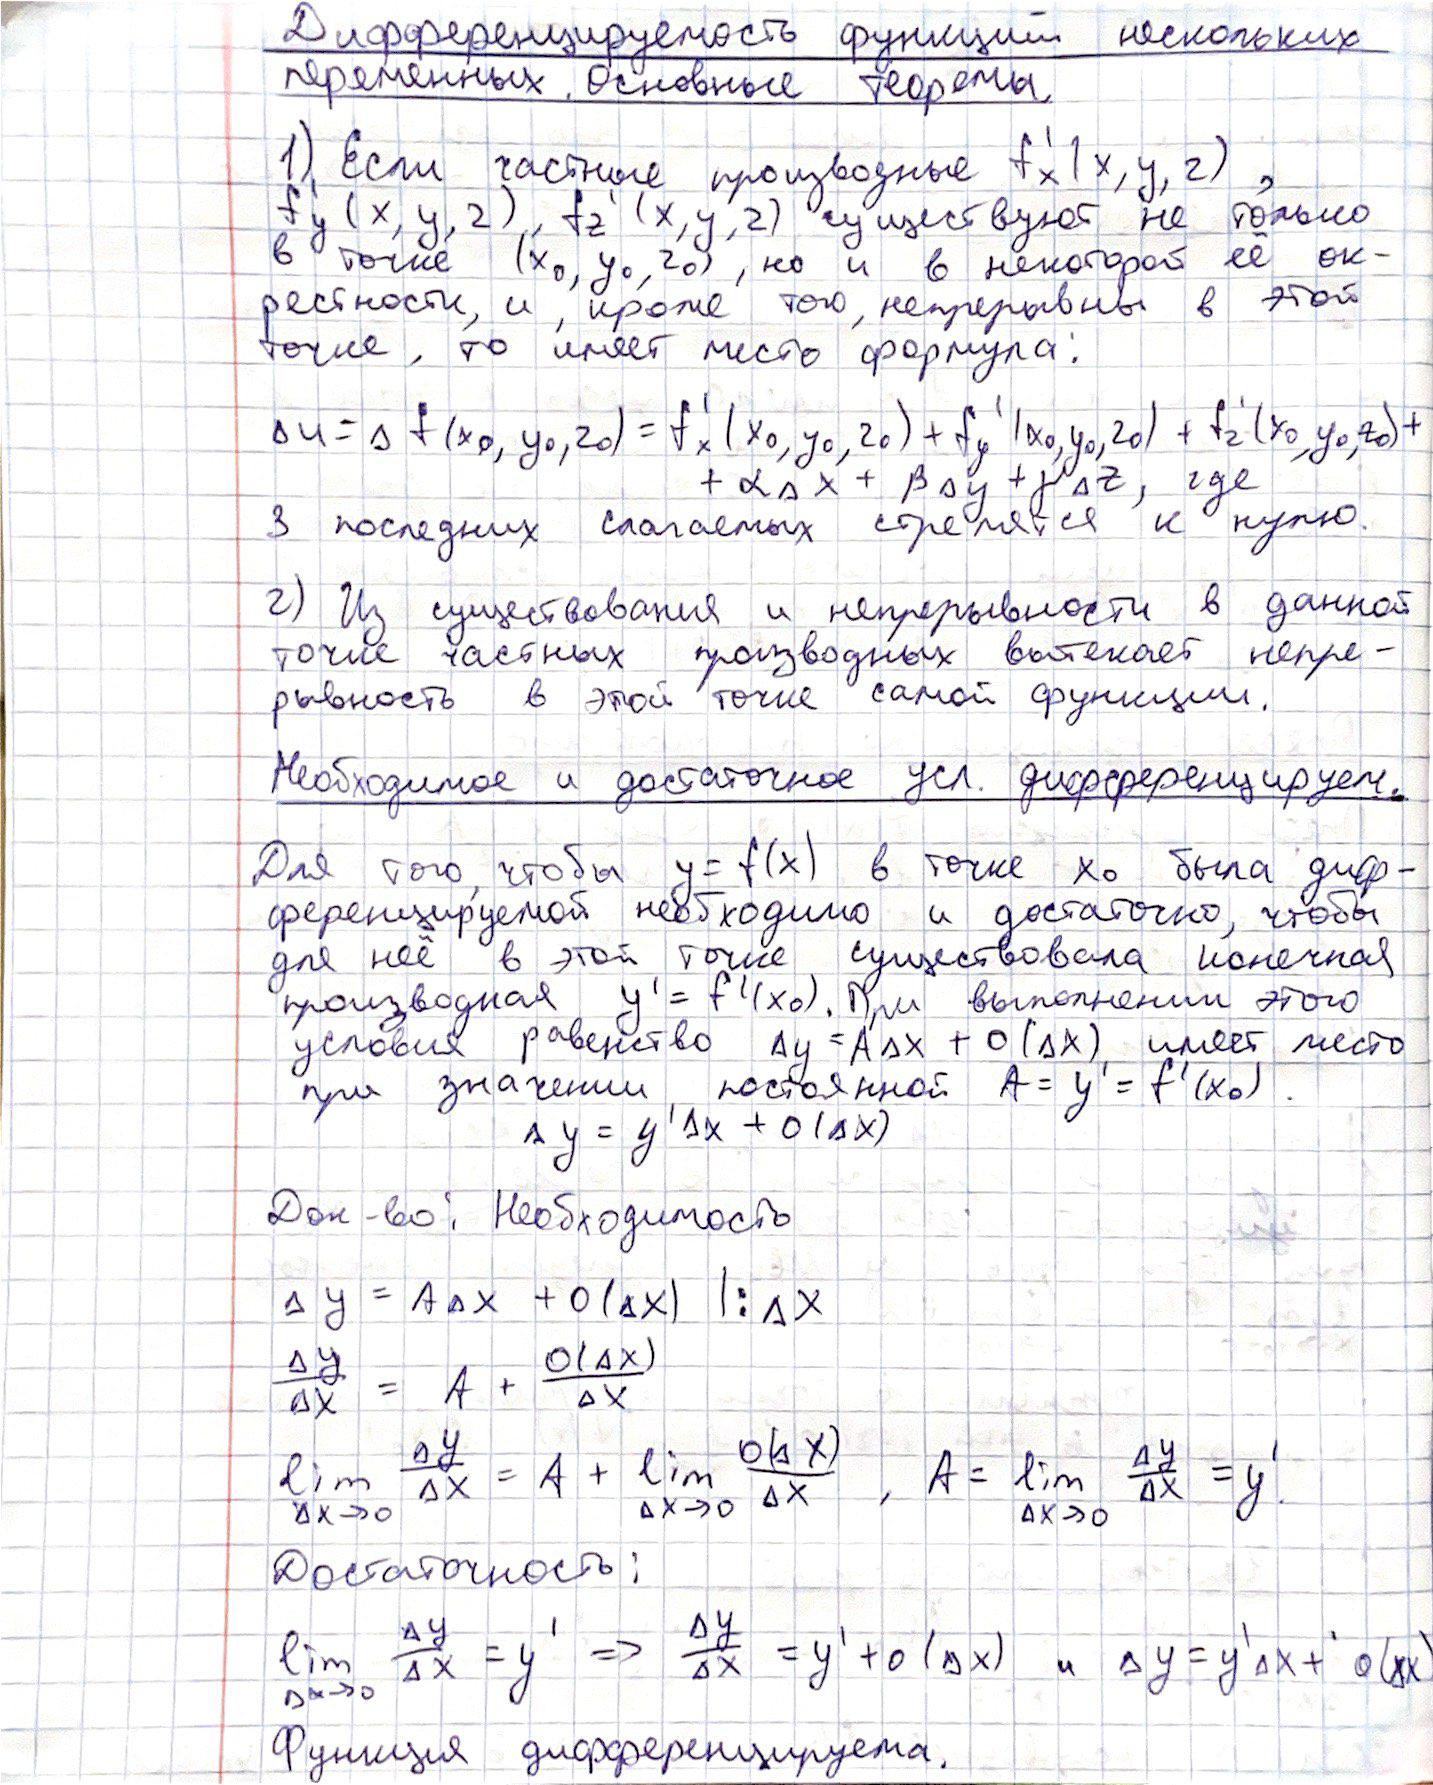 Дифференцируемость функций нескольких
переменных. Основные теоремы.
1) Если частные производные f'x(x, y, z),
f'y(x, y, z), fz'(x, y, z) существуют не только
в точке (x₀, y₀, z₀), но и в некоторой её ок-
рестности, и, кроме того, непрерывны в этой
точке, то имеет место формула:
Δu = Δf(x₀, y₀, z₀) = f'x(x₀, y₀, z₀) + fy'(x₀, y₀, z₀) + fz'(x₀, y₀, z₀) +
+ αΔx + βΔy + γΔz, где
3 последних слагаемых стремятся к нулю.
2) Из существования и непрерывности в данной
точке частных производных вытекает непре-
рывность в этой точке самой функции.
Необходимое и достаточное усл. дифференцируем.
Для того, чтобы y = f(x) в точке x₀ была диф-
ференцируемой необходимо и достаточно, чтобы
для неё в этой точке существовала конечная
производная y' = f'(x₀). При выполнении этого
условия равенство Δy = AΔx + O(Δx) имеет место
при значении постоянной A = y' = f'(x₀).
Δy = y'Δx + O(Δx)
Док-во: Необходимость
Δy = AΔx + O(Δx) |:Δx
Δy/Δx = A + O(Δx)/Δx
lim Δx→0 Δy/Δx = A + lim Δx→0 O(Δx)/Δx, A = lim Δx→0 Δy/Δx = y'.
Достаточность:
lim Δx→0 Δy/Δx = y' => Δy/Δx = y' + o(Δx) и Δy = y'Δx + o(Δx)
Функция дифференцируема.